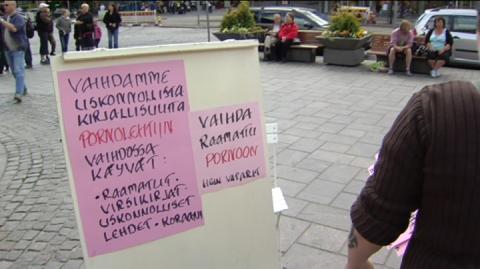 VAIHDAMME
USKONNOLLISTA
KIRJALLISUUTTA
PORNOLEHTIIN
VAIHDOSSA
KÄYVÄT:
•RAAMATUT•
VIRSIKIRJAT•
USKONNOLLISET
LEHDET•KORAANI
VAIHDA
RAAMATTU
PORNOON